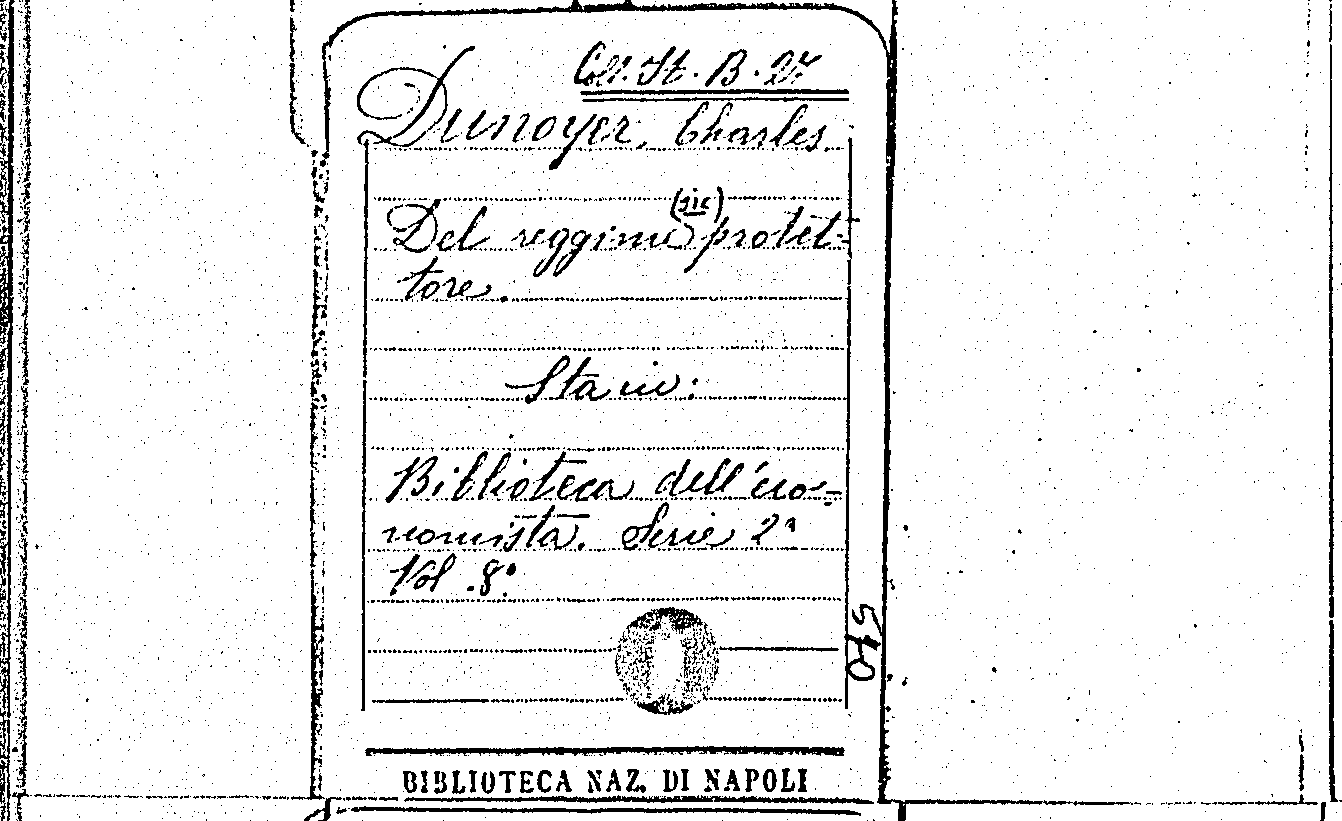 Coll. It. B. 27
Dunoyer, Charles.
(sic)
Del reggime protet-
tore.
Sta in:
Biblioteca dell'eco-
nomista. Serie 2ª
Vol. 8º
540
BIBLIOTECA NAZ. DI NAPOLI